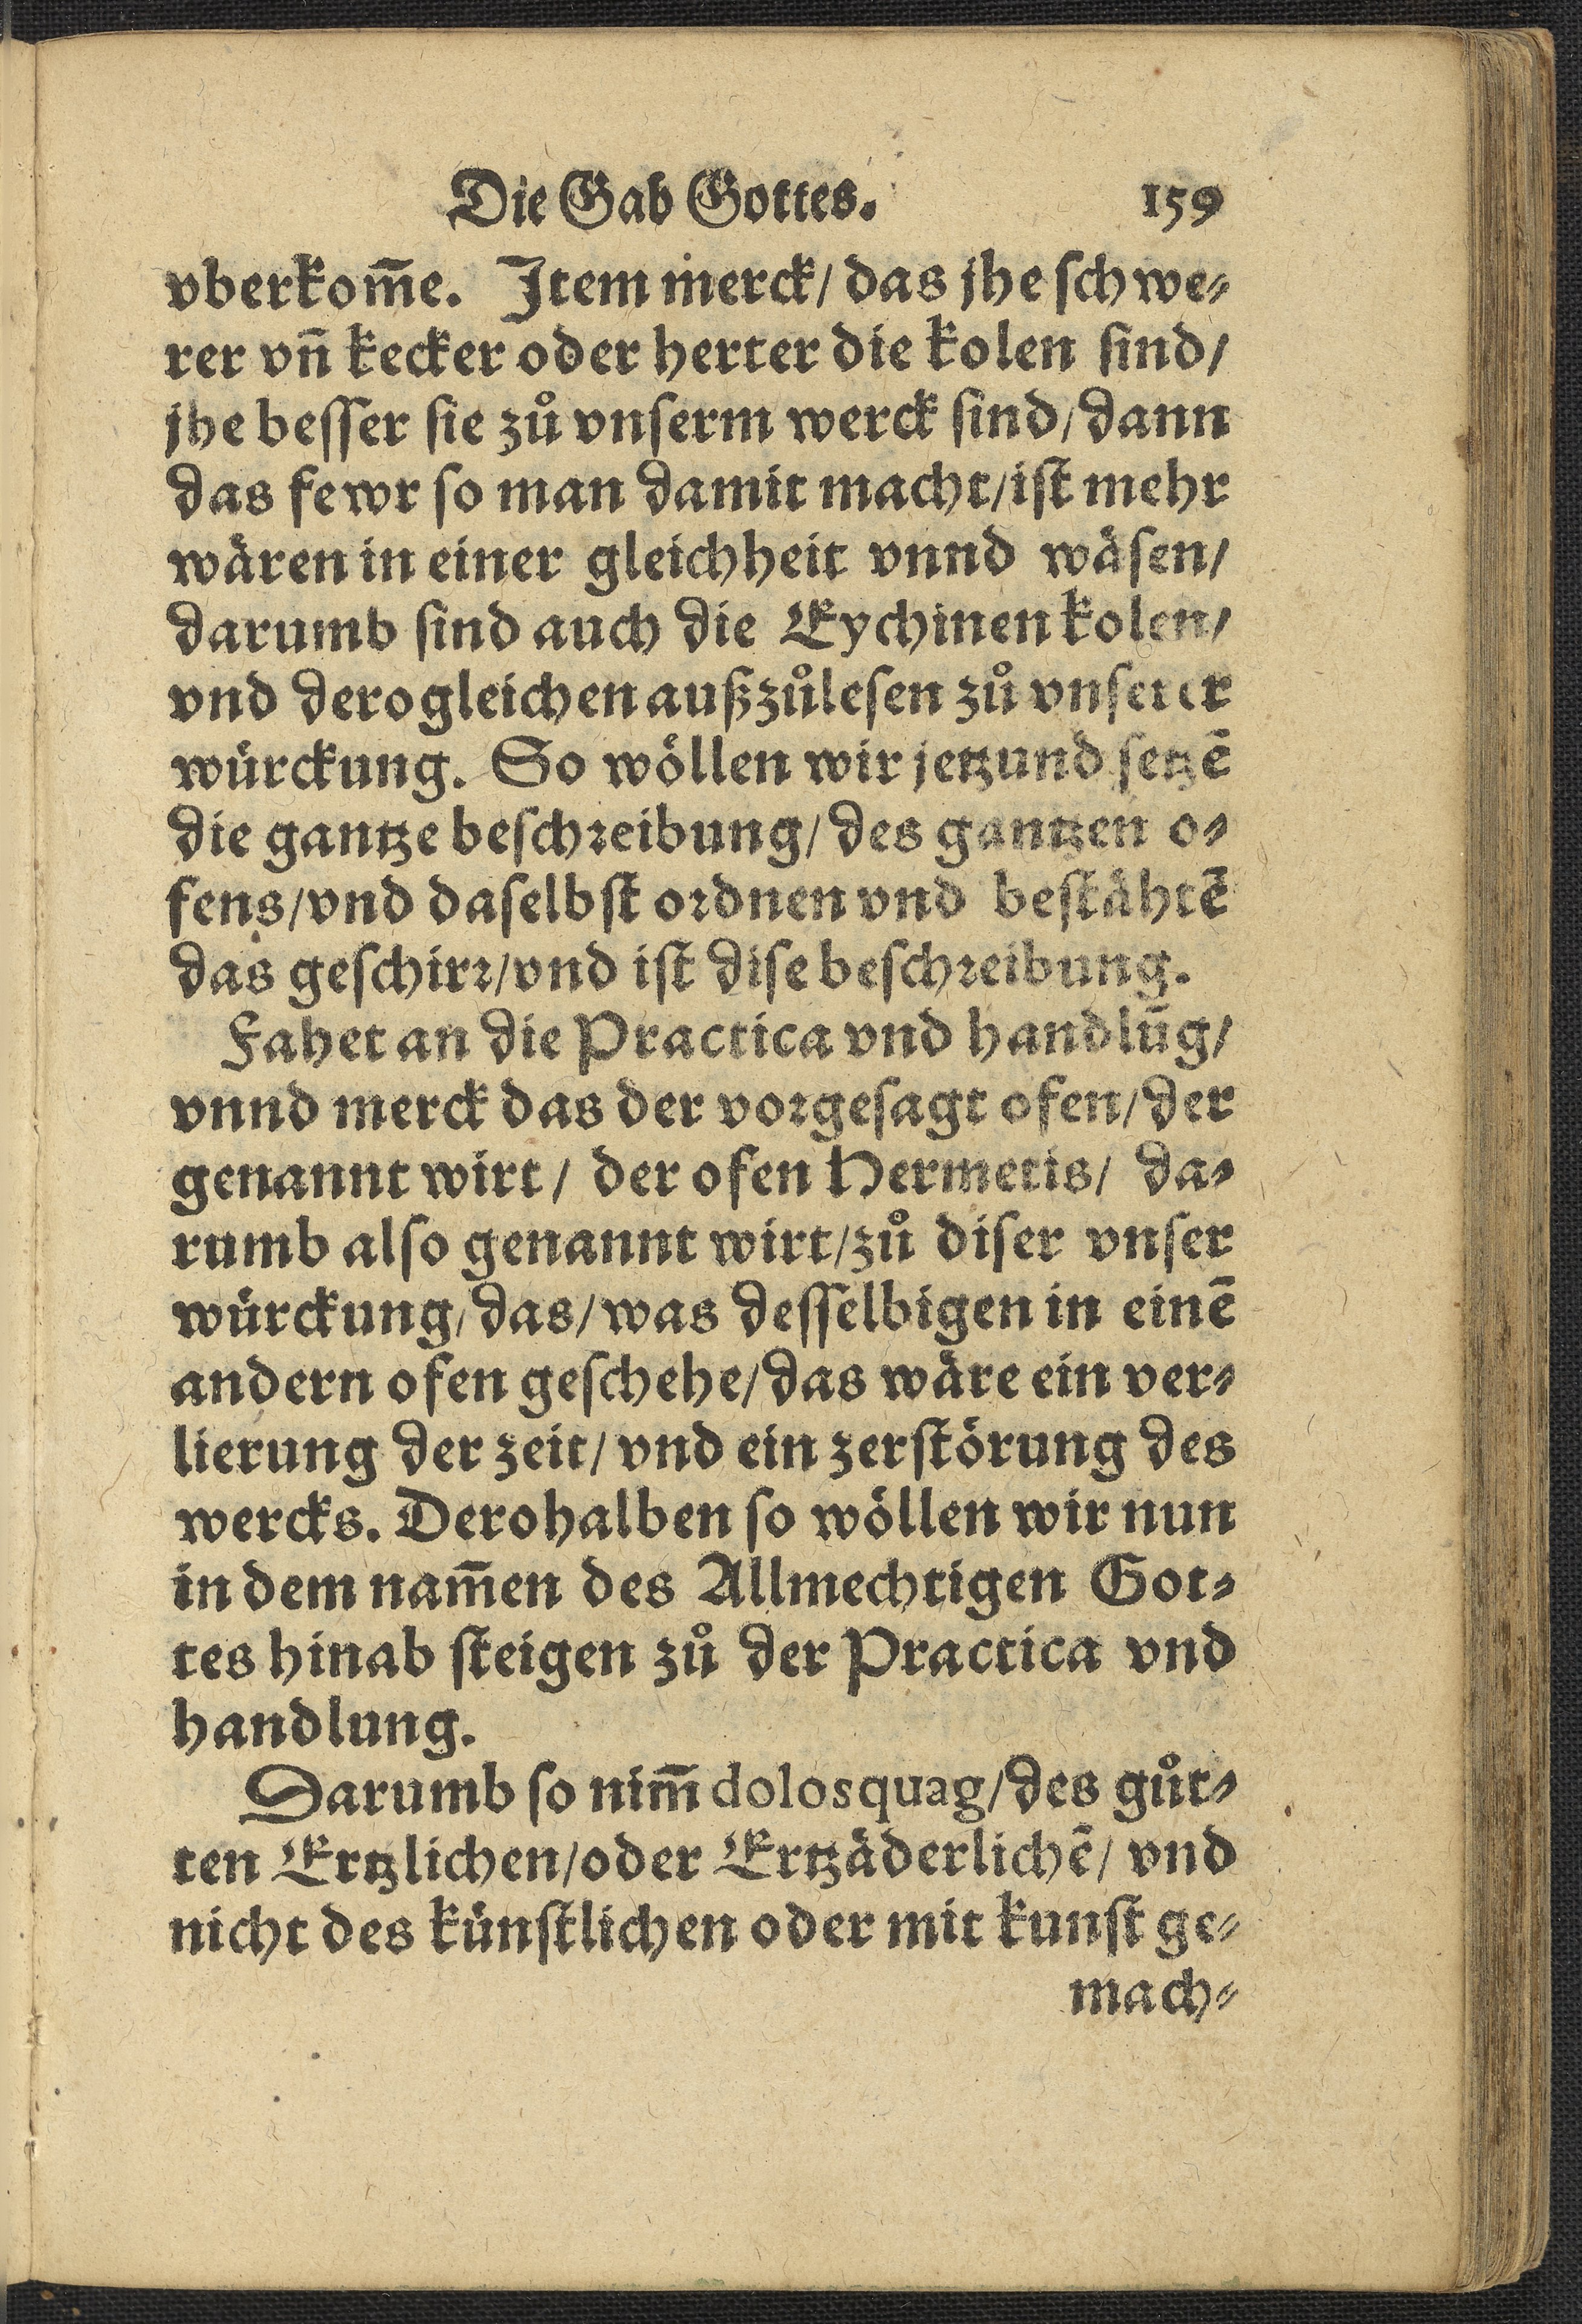 Die Gab Gottes. 159
vberkom̃e. Item merck/ das jhe schwe⸗
rer vñ kecker oder herter die kolen sind/
jhe besser sie zů vnserm werck sind/ dann
das fewr so man damit macht/ ist mehr
wären in einer gleichheit vnnd wäsen/
darumb sind auch die Eychinen kolen/
vnd derogleichen außzůlesen zů vnserer
würckung. So wöllen wir jetzund setzē
die gantze beschreibung/ des gantzen o⸗
fens/ vnd daselbst ordnen vnd bestähtē
das geschirr/ vnd ist dise beschreibung.
Fahet an die Practica vnd handlūg/
vnnd merck das der vorgesagt ofen/ der
genannt wirt/ der ofen Hermetis/ da⸗
rumb also genannt wirt/ zů diser vnser
würckung/ das/ was desselbigen in einē
andern ofen geschehe/ das wäre ein ver⸗
lierung der zeit/ vnd ein zerstörung des
wercks. Derohalben so wöllen wir nun
in dem nam̃en des Allmechtigen Got⸗
tes hinab steigen zů der Practica vnd
handlung.
Darumb so nim̃ dolosquag/ des gůt⸗
ten Ertzlichen/ oder Ertzäderlichē/ vnd
nicht des künstlichen oder mit kunst ge⸗
mach⸗